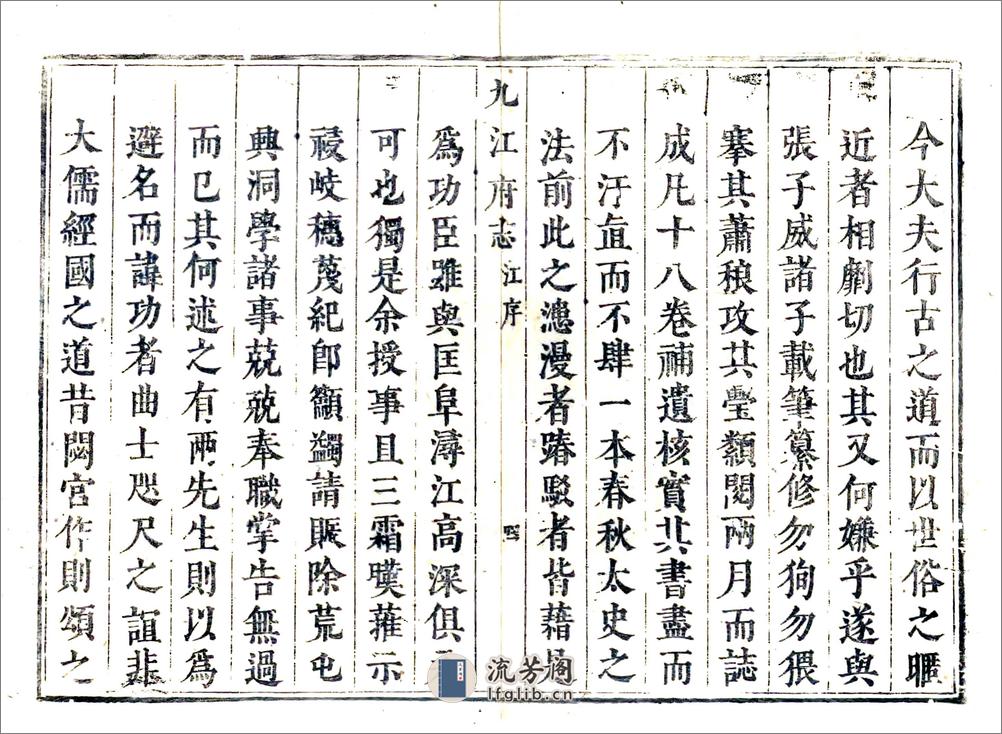 今大夫行古之道而以世俗之暱
近者相劘切也其又何嫌乎遂與
張子威諸子載筆纂修勿狥勿猥
搴其蕭稂攻其璺纇閱兩月而誌
成凡十八卷補遺核實其書盡而
不汙直而不肆一本春秋太史之
法前此之漶漫者踳駁者皆藉
九江府志 江序 四
爲功臣雖與匡阜潯江高深俱
可也獨是余授事且三霜嘆蓷示
祲岐穗蔑紀卽籲蠲請賑除荒屯
興洞學諸事兢兢奉職掌告無過
而已其何述之有兩先生則以爲
避名而諱功者曲士咫尺之誼非
大儒經國之道昔閟宮作則頌之
流芳阁
lfglib.cn